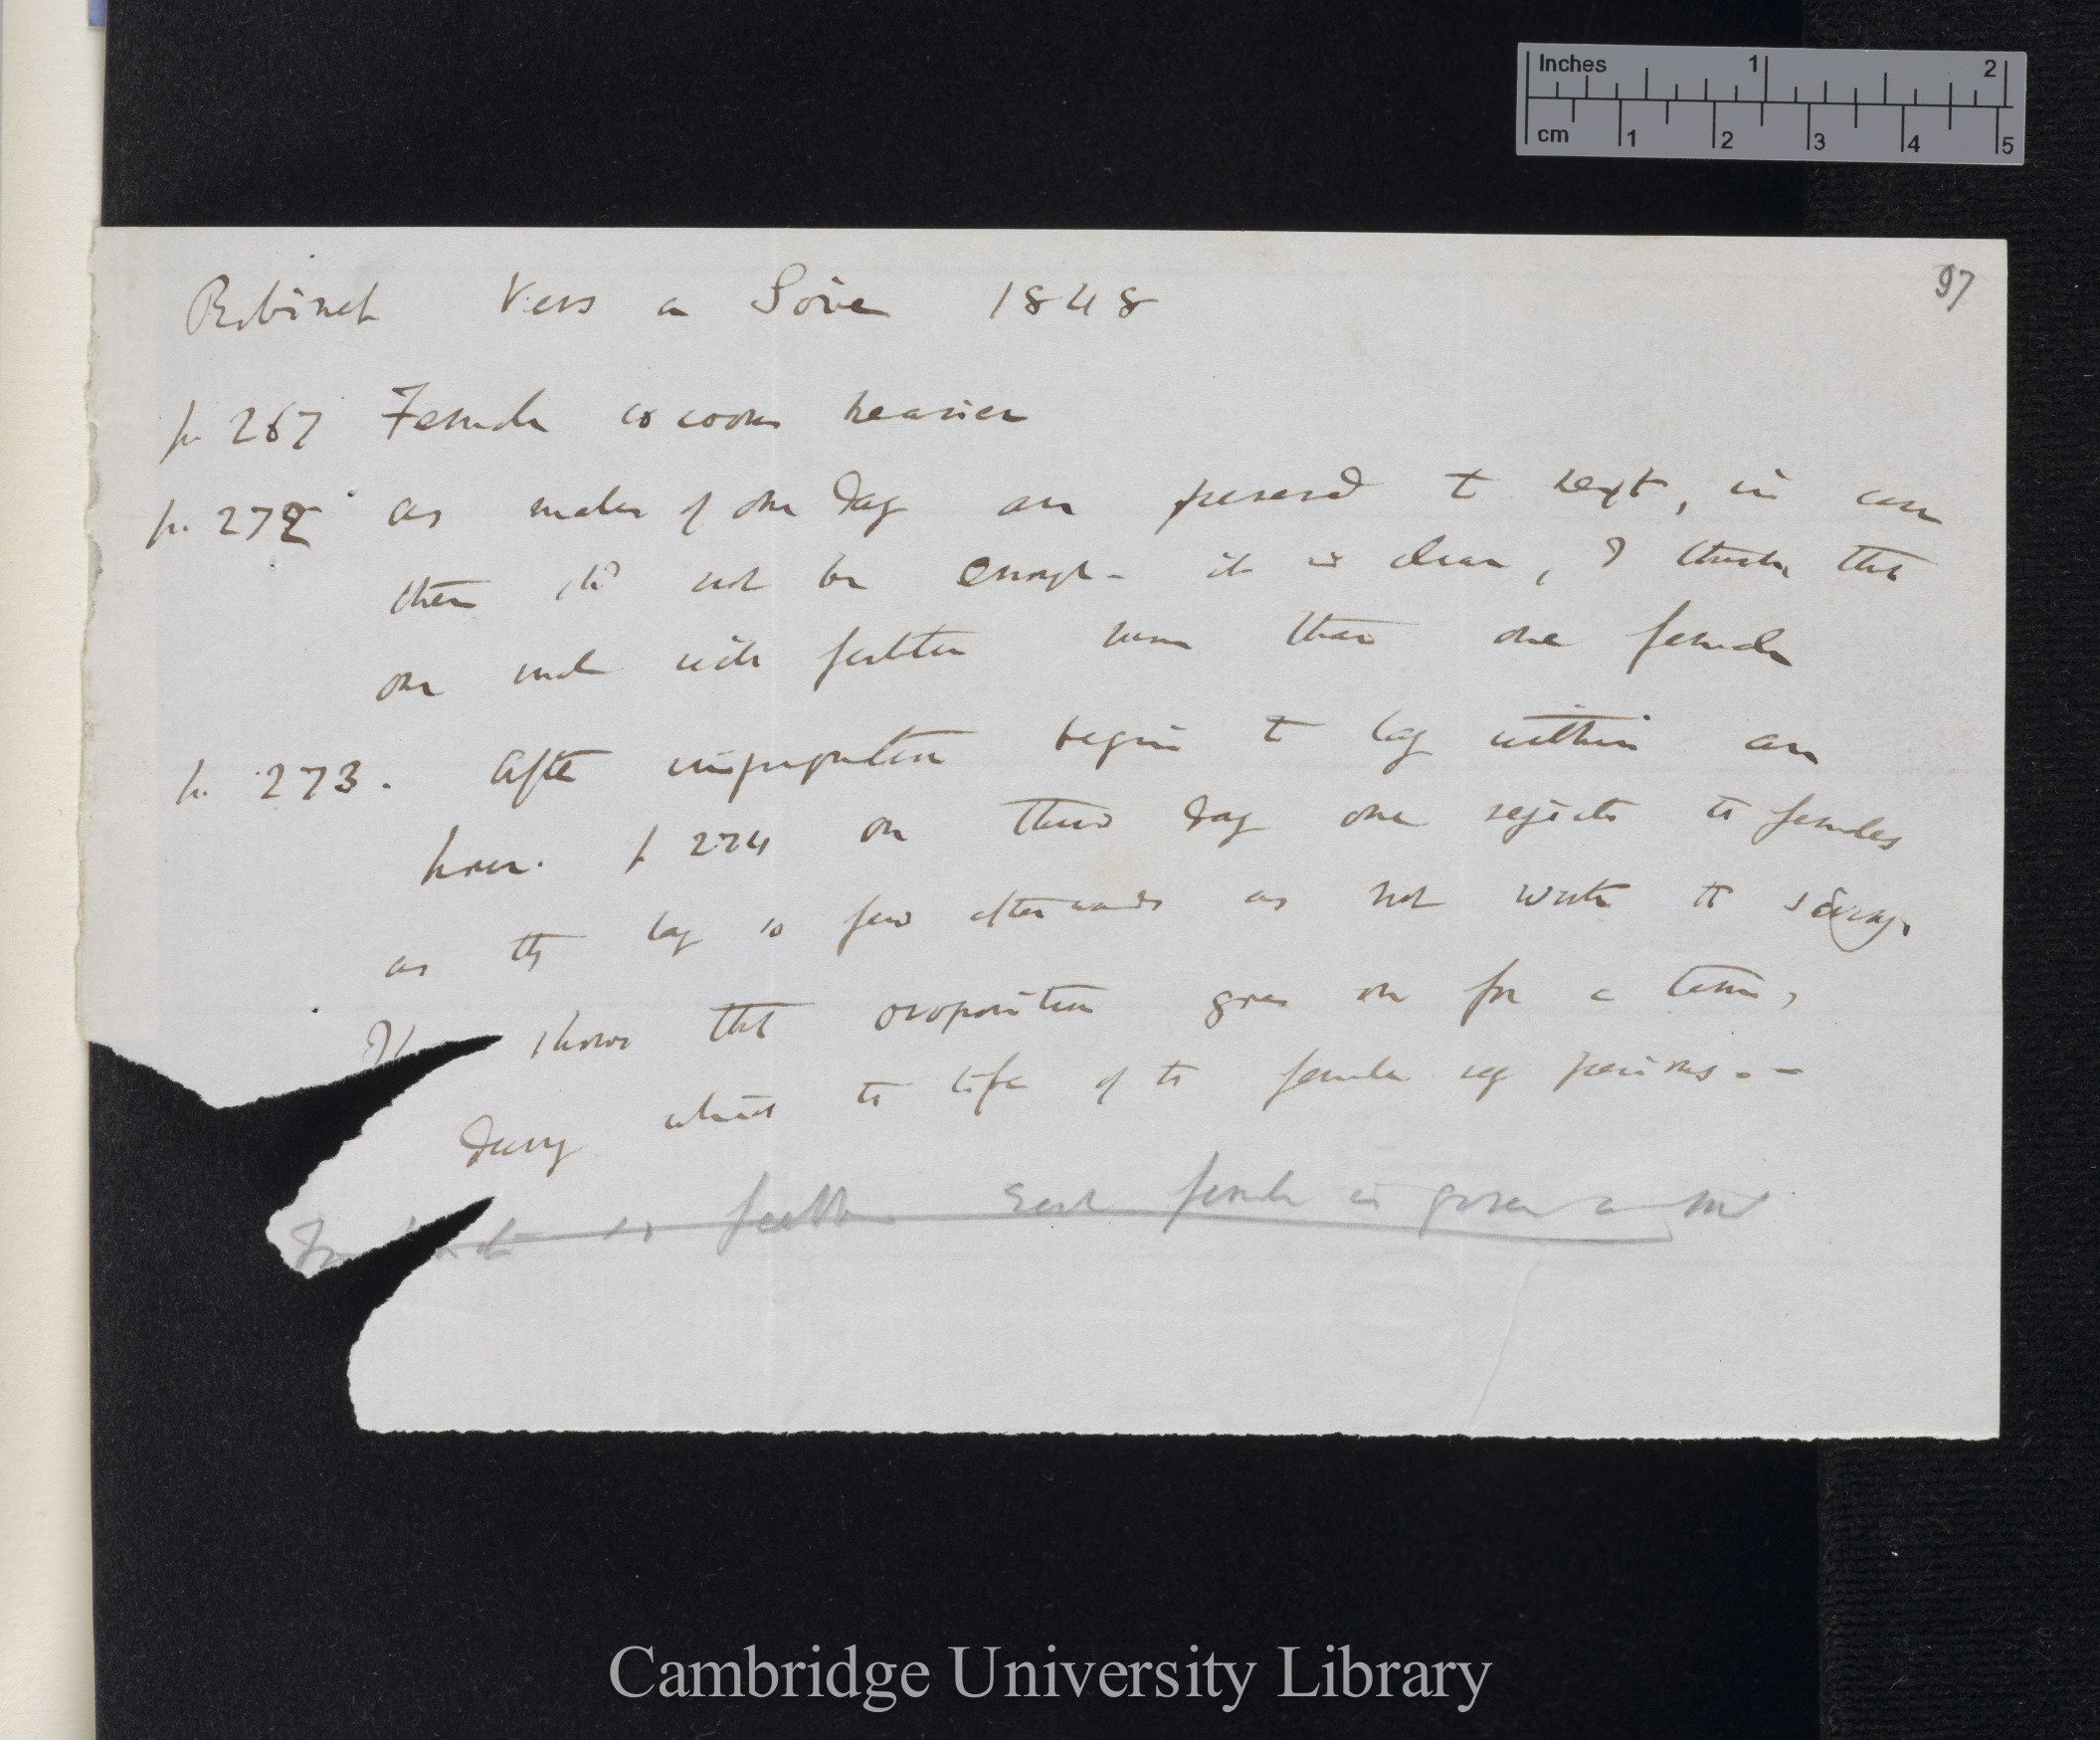 Inches 1 2
cm 1 2 3 4 5
97
Robinet Vers a Soie 1848
p. 267 Female cocoons heavier
p. 272 as males of one day are preserved to next, in case
there shd not be enough — it is clear, I think that
one male will fertilise more than one female
p. 273. After impregnation begin to lay within an
hour. p 274 on third day one rejects the females
as they lay so few afterwards as not worth the saving.
shows that oviposition goes on for a time,
during which the life of the female is precious. —
Each female is given a
Cambridge University Library